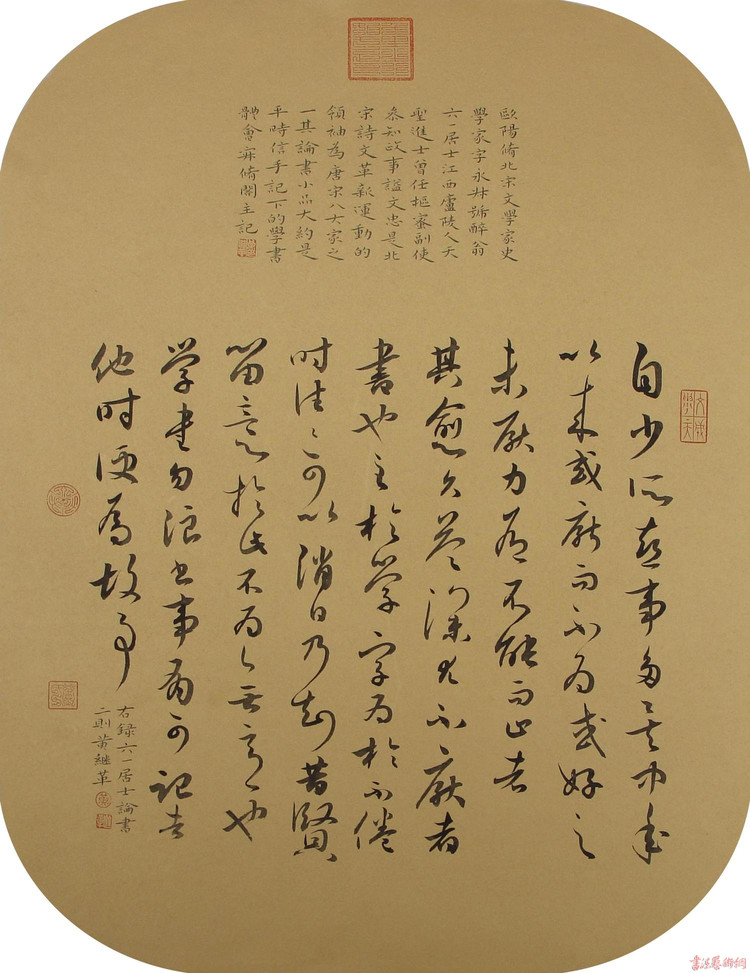 歐陽脩北宋文學家史
學家字永叔號醉翁
六一居士江西廬陵人天
聖進士曾任樞密副使
叅知政事謚文忠是北
宋詩文革新運動的
領袖為唐宋八大家之
一其論書小品大約是
平時信手記下的學書
體會脩閣主記
自少所喜事多矣中年
以來或厭而不為或好之
未厭力有不能而止者
其愈久益深尤不厭者
書也至於學字為於不倦
時往往可以消日乃知昔賢
留意於此不為無意也
學書勿浪書事有可記者
他時便為故事
右錄六一居士論書
二則黃継革
書法藝術網